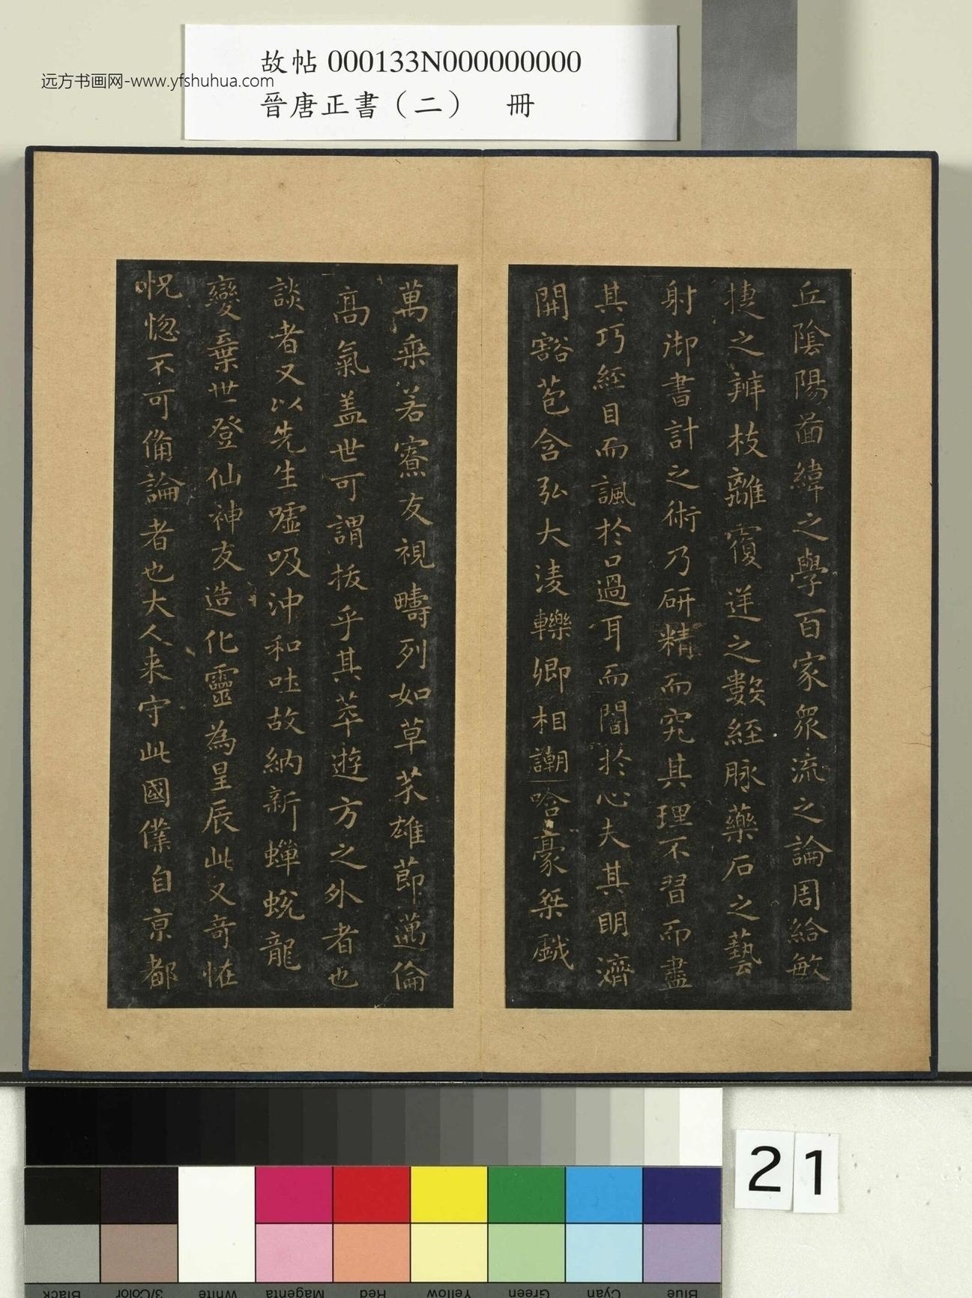 故帖 000133N000000000
远方书画网-www.yfshuhua.com
晉唐正書（二） 冊
丘陰陽啚緯之學百家衆流之論周給敏
捷之辨枝離覆逆之數經脉藥石之藝
射御書計之術乃研精而究其理不習而盡
其巧經目而諷於口過耳而闇於心夫其明濟
開豁苞含弘大淩轢卿相謿哈豪桀戲
萬乘若寮友視疇列如草芥雄節邁倫
高氣盖世可謂拔乎其萃遊方之外者也
談者又以先生噓吸沖和吐故納新蟬蛻龍
變棄世登仙神友造化靈為星辰此又奇恠
怳惚不可備論者也大人来守此國僕自京都
21
Black 3/Color White Magenta Red Yellow Green Cyan Blue